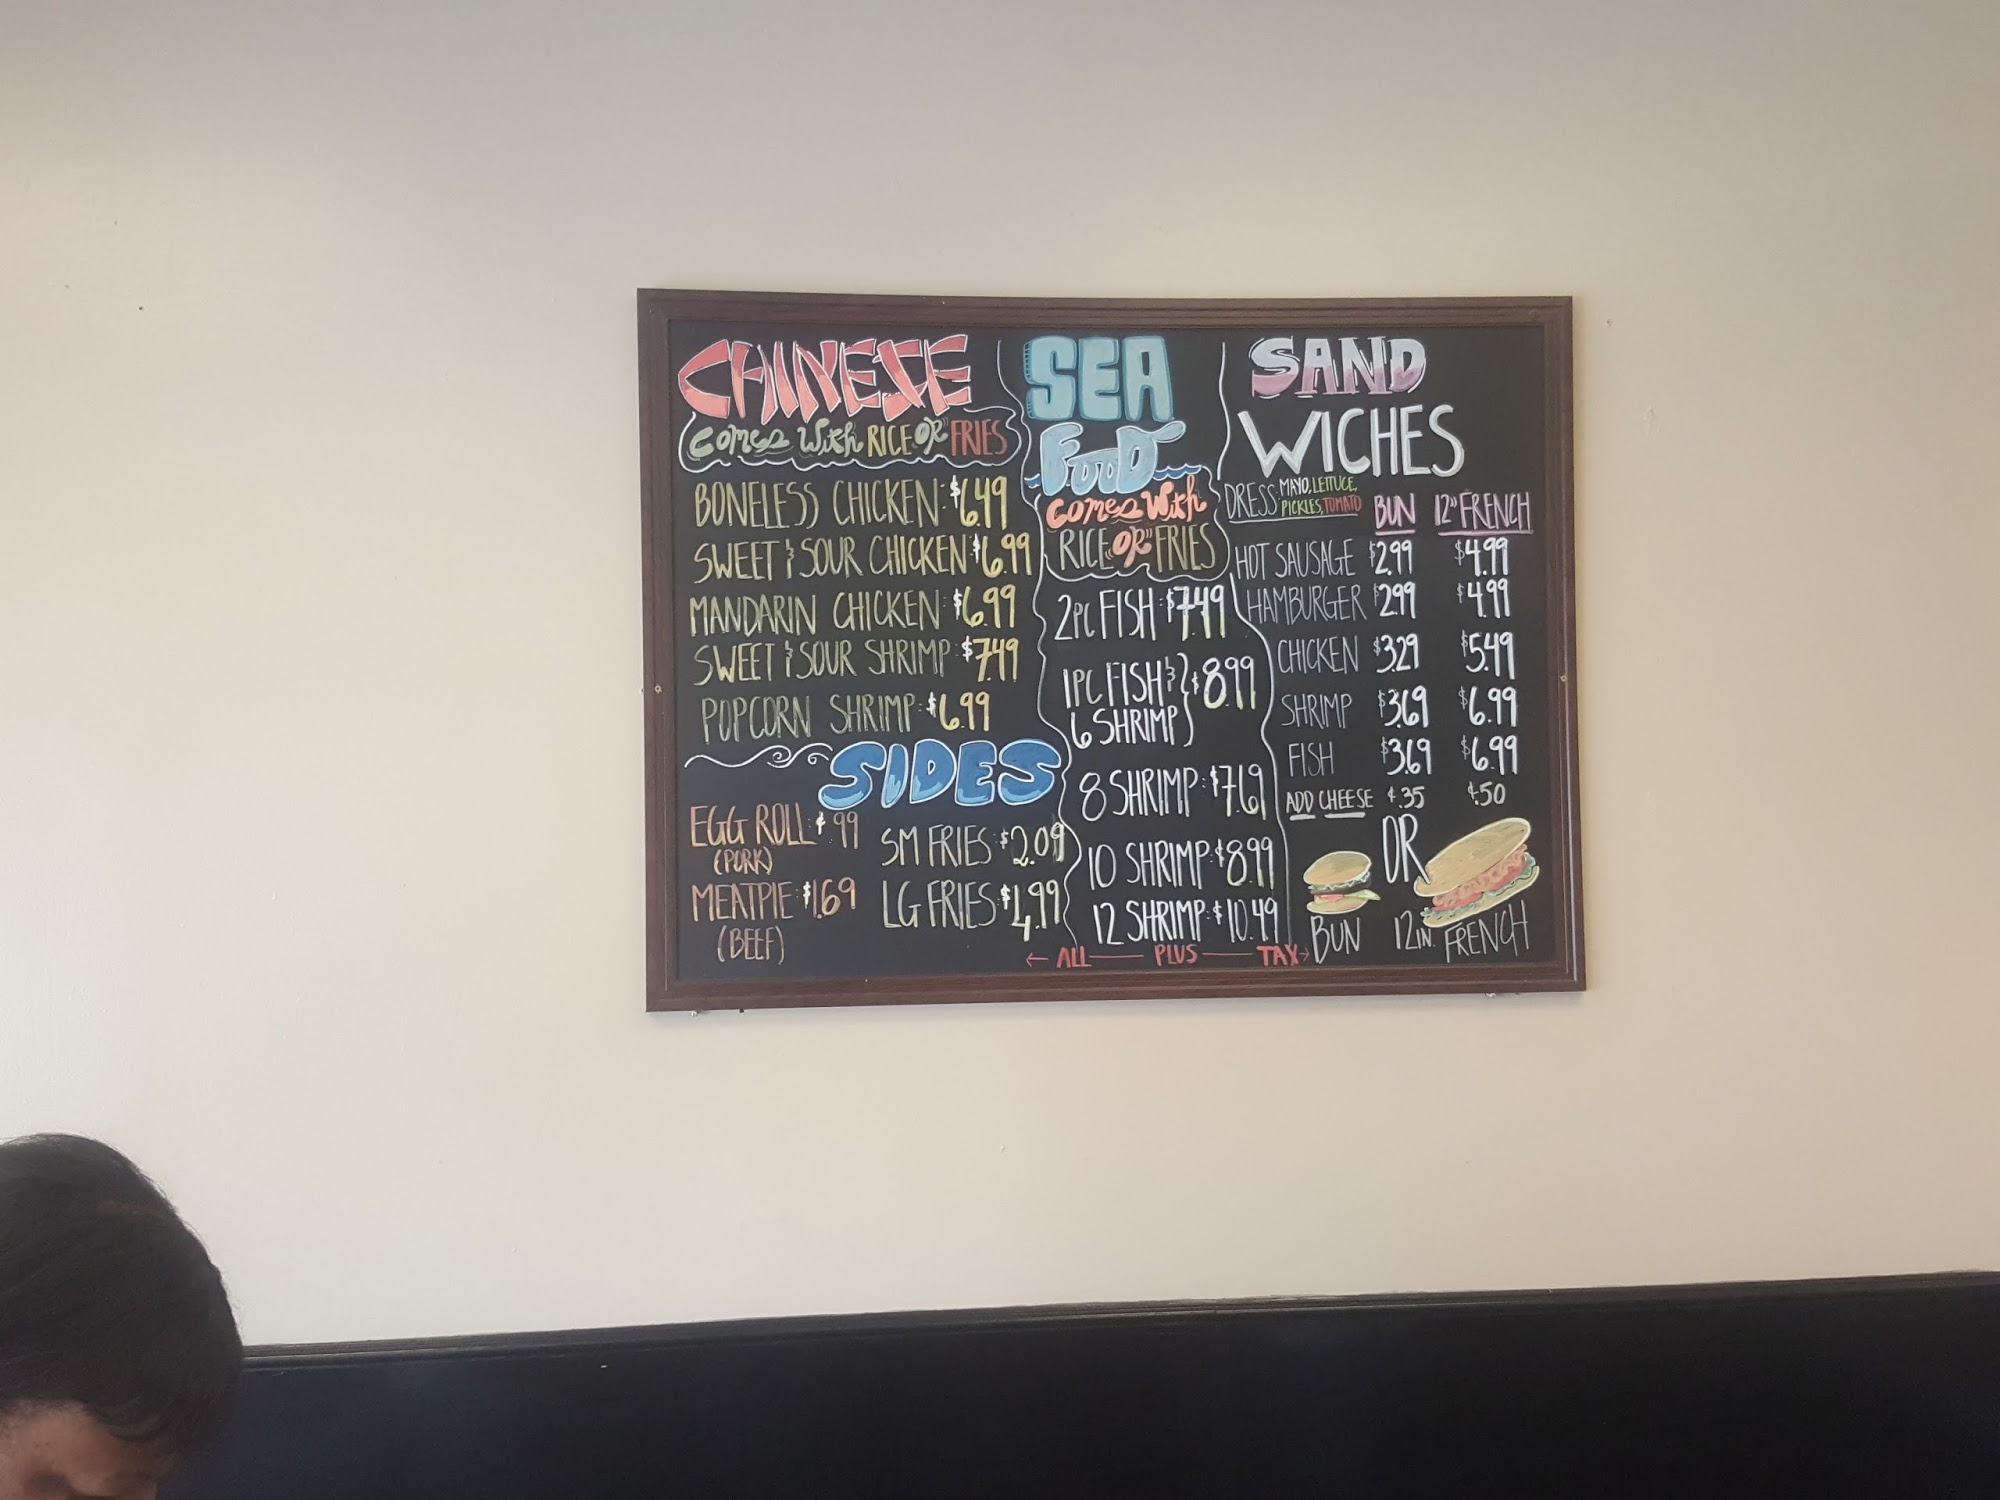 CHINESE
COMES WITH RICE OR FRIES
BONELESS CHICKEN: $6.49
SWEET & SOUR CHICKEN: $6.99
MANDARIN CHICKEN: $6.99
SWEET & SOUR SHRIMP: $7.49
POPCORN SHRIMP: $6.99
SIDES
EGG ROLL: ¢.99
(PORK)
MEATPIE: $1.69
(BEEF)
SM FRIES: $2.09
LG FRIES: $4.99
SEA
FOOD
COMES WITH
RICE "OR" FRIES
2PC FISH: $7.49
1PC FISH & } $8.99
6 SHRIMP
8 SHRIMP: $7.69
10 SHRIMP: $8.99
12 SHRIMP: $10.49
← ALL — PLUS — TAX →
SAND
WICHES
DRESS: MAYO, LETTUCE,
PICKLES, TOMATO
BUN 12" FRENCH
HOT SAUSAGE $2.99 $4.99
HAMBURGER $2.99 $4.99
CHICKEN $3.29 $5.49
SHRIMP $3.69 $6.99
FISH $3.69 $6.99
ADD CHEESE ¢.35 ¢.50
OR
BUN 12IN. FRENCH